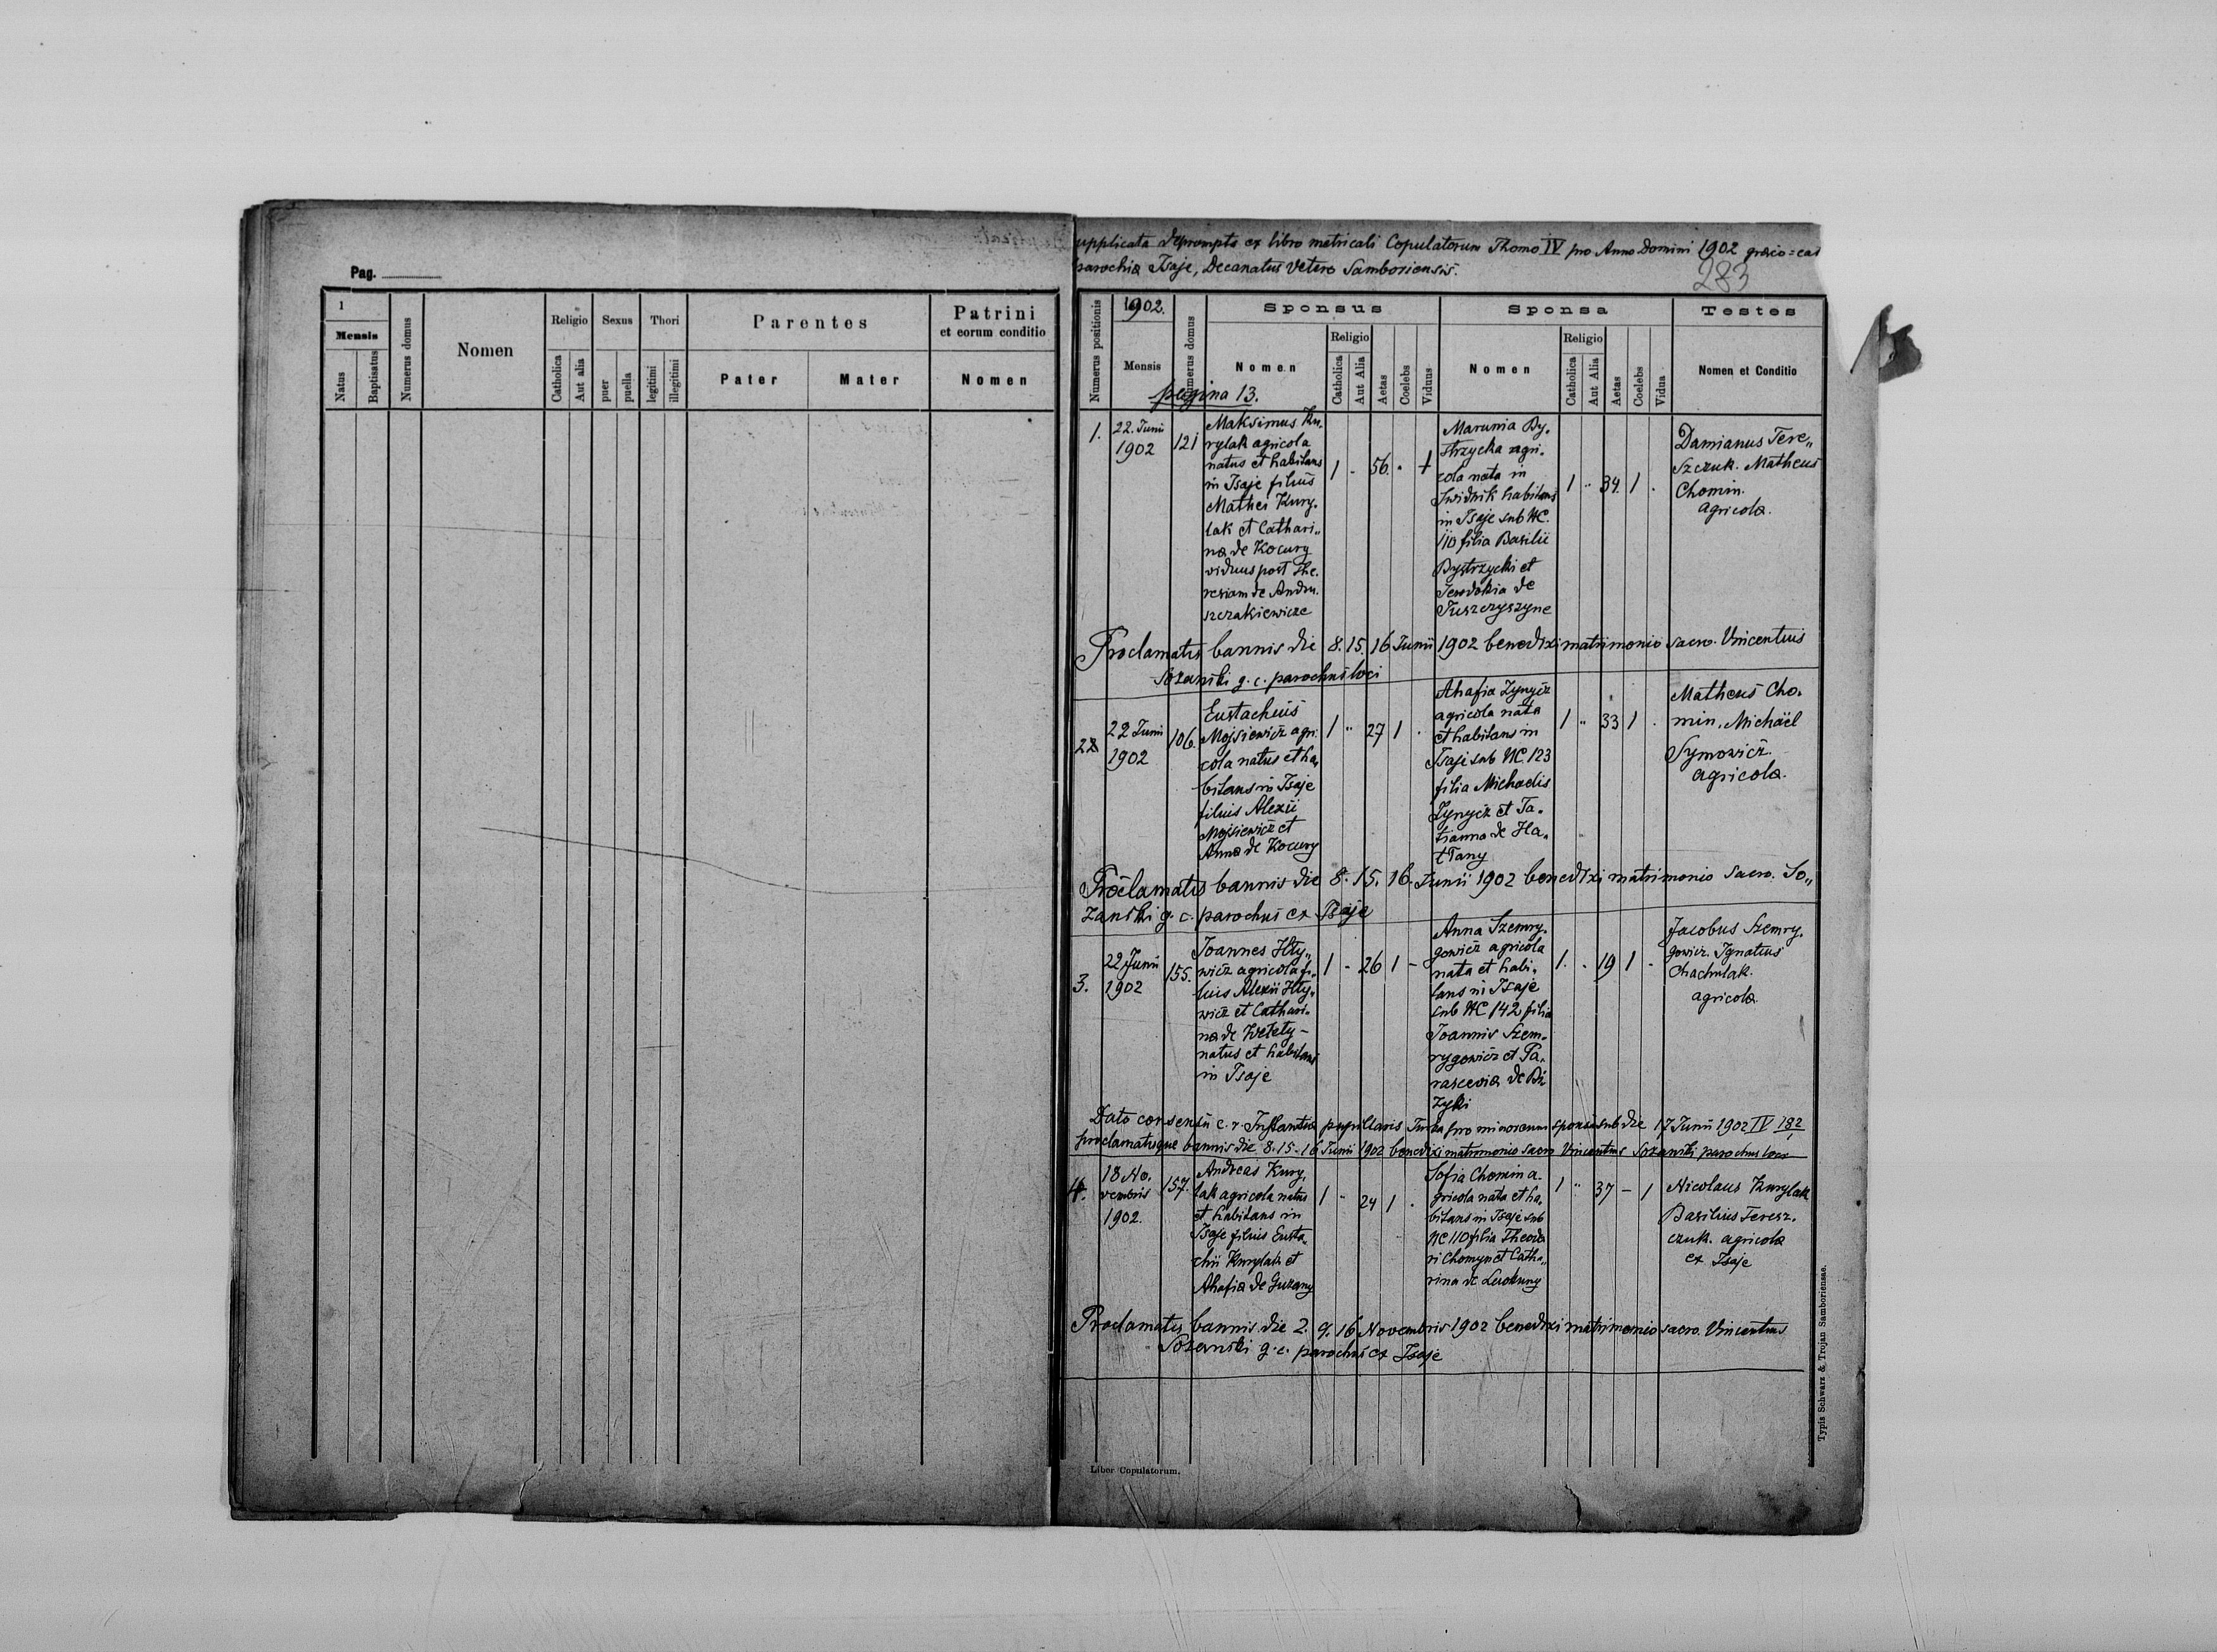 Pag.
1
Mensis
Natus
Baptisatus
Numerus domus
Nomen
Religio
Catholica
Aut alia
Sexus
puer
puella
Thori
legitimi
illegitimi
Parentes
Pater
Mater
Patrini
et eorum conditio
Nomen
upplicata deprompta ex libro metricali Copulatorum Thomo IV pro Anno Domini 1902 græco=cat
parochia Isaje, Decanatus Vetero Samboriensis.
283
Numerus positionis
1902.
Mensis
Numerus domus
Sponsus
Nomen
Religio
Catholica
Aut Alia
Aetas
Coelebs
Viduus
Sponsa
Nomen
Religio
Catholica
Aut Alia
Aetas
Coelebs
Vidua
Testes
Nomen et Conditio
pagina 13.
1.
22. Junii
1902
121
Maksimus Ku-
rylak agricola
natus et habitans
in Isaje filius
Mathei Kury-
lak et Cathari„
na de Kocury
viduus post The-
resiam de Andru-
szczakiewicze
1 - 56. . +
Marunia By-
strzycka agri-
cola nata in
Swidnik habitans
in Isaje sub NC.
110 filia Basilii
Bystrzycki et
Jewdokia de
Tuszczyszyne
1 „ 34. 1 .
Damianus Tere„
szczuk. Matheus
Chomin.
agricola.
Proclamatis bannis die 8. 15. 16 Junii 1902 benedixi matrimonio sacro. Vincentius
Sozański g. c. parochus loci
22
22 Junii
1902
106.
Eustachius
Mojsiewicz agri-
cola natus et ha-
bitans in Isaje
filius Alexii
Mojsiewicz et
Anna de Kocury
1 „ 27 1 .
Ahafia Zynycz
agricola nata
et habitans in
Isaje sub NC. 123
filia Michaelis
Zynycz et Ta-
tianna de Ha-
1 „ 33 1 .
Matheus Cho-
min. Michäel
Symowicz.
agricola.
Proclamatis bannis die 8. 15. 16. Junii 1902 benedixi matrimonio sacro. So„
zański g. c. parochus ex Isaje
3.
22 Junii
1902
155.
Joannes Hły„
wicz agricola fi-
lius Alexii Hły-
wicz et Cathari-
na de
natus et habitans
in Isaje
1 - 26 1 -
Anna Szemry-
gowicz agricola
nata et habi-
tans in Isaje
sub NC 142 filia
Joannis Szem-
rygowicz et Pa-
rascevia de Bi
zyki
1. . 19 1 -
Jacobus Szemry-
gowicz. Ignatius
Chachulak.
agricola
Dato consensu c. r. Instantia pupillaris Turka pro minorenni sponsa sub die 17 Junii 1902 IV 182/1
proclamatisque bannis die 8. 15 - 16 Junii 1902 benedixi matrimonio sacro Vincentius Sozański parochus loci
4.
18 No-
vembris
1902.
157.
Andreas Kury-
lak agricola natus
et habitans in
Isaje filius Eusta-
chii Kurylak et
Ahafia de Guzany
1 - 24 1 .
Sofia Chomin a-
gricola nata et ha-
bitans in Isaje sub
NC 110 filia Theodo
ri Chomyn et Catha„
rina de
1 „ 37 - 1
Nicolaus Kurylak
Basilius Teresz-
czuk. agricola
ex Isaje
Proclamatis bannis die 2. 9. 16 Novembris 1902 benedixi matrimonio sacro. Vincentius
Sozański g. c. parochus ex Isaje
Liber Copulatorum.
Typis Schwarz & Trojan Samboriensae.